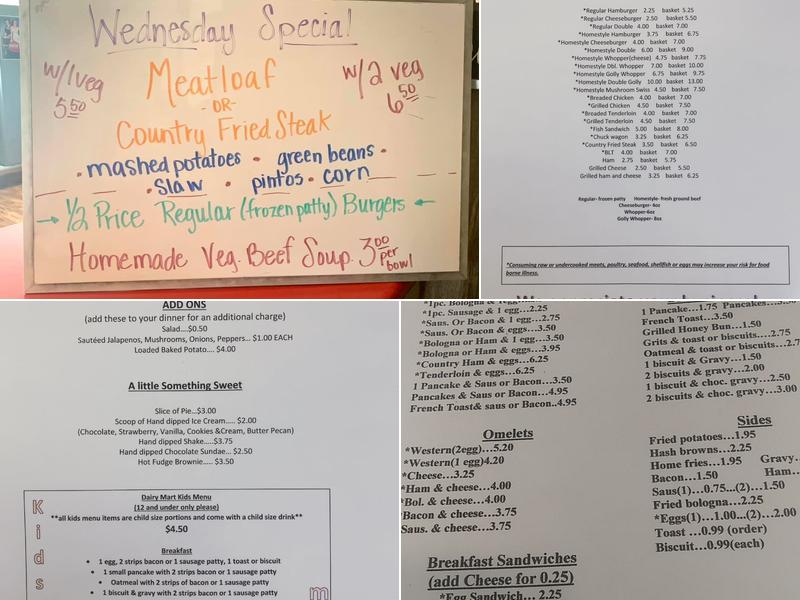 Wednesday Special
w/1veg
5.50
Meatloaf
-OR-
Country Fried Steak
w/2 veg
6.50
. mashed potatoes . green beans .
. slaw . pintos . corn
→ 1/2 Price Regular (frozen patty) Burgers ←
Homemade Veg. Beef Soup 3.00 per bowl
*Regular Hamburger 2.25 basket 5.25
*Regular Cheeseburger 2.50 basket 5.50
*Regular Double 4.00 basket 7.00
*Homestyle Hamburger 3.75 basket 6.75
*Homestyle Cheeseburger 4.00 basket 7.00
*Homestyle Double 6.00 basket 9.00
*Homestyle Whopper(cheese) 4.75 basket 7.75
*Homestyle Dbl. Whopper 7.00 basket 10.00
*Homestyle Golly Whopper 6.75 basket 9.75
*Homestyle Double Golly 10.00 basket 13.00
*Homestyle Mushroom Swiss 4.50 basket 7.50
*Breaded Chicken 4.00 basket 7.00
*Grilled Chicken 4.50 basket 7.50
*Breaded Tenderloin 4.00 basket 7.00
*Grilled Tenderloin 4.50 basket 7.50
*Fish Sandwich 5.00 basket 8.00
*Chuck wagon 3.25 basket 6.25
*Country Fried Steak 3.50 basket 6.50
*BLT 4.00 basket 7.00
Ham 2.75 basket 5.75
Grilled Cheese 2.50 basket 5.50
Grilled ham and cheese 3.25 basket 6.25
Regular- frozen patty Homestyle- fresh ground beef
Cheeseburger- 4oz
Whopper-6oz
Golly Whopper- 8oz
*Consuming raw or undercooked meats, poultry, seafood, shellfish or eggs may increase your risk for food
borne illness.
ADD ONS
(add these to your dinner for an additional charge)
Salad....$0.50
Sautéed Jalapenos, Mushrooms, Onions, Peppers... $1.00 EACH
Loaded Baked Potato.... $4.00
A little Something Sweet
Slice of Pie...$3.00
Scoop of Hand dipped Ice Cream..... $2.00
(Chocolate, Strawberry, Vanilla, Cookies &Cream, Butter Pecan)
Hand dipped Shake.....$3.75
Hand dipped Chocolate Sundae... $2.50
Hot Fudge Brownie..... $3.50
Kids
m
Dairy Mart Kids Menu
(12 and under only please)
**all kids menu items are child size portions and come with a child size drink**
$4.50
Breakfast
• 1 egg, 2 strips bacon or 1 sausage patty, 1 toast or biscuit
• 1 small pancake with 2 strips bacon or 1 sausage patty
• Oatmeal with 2 strips of bacon or 1 sausage patty
• 1 biscuit & gravy with 2 strips bacon or 1 sausage patty
*1pc. Bologna & 1 egg
*1pc. Sausage & 1 egg...2.25
*Saus. Or Bacon & 1 egg...2.75
*Saus. Or Bacon & eggs...3.50
*Bologna or Ham & 1 egg...3.50
*Bologna or Ham & eggs...3.95
*Country Ham & eggs...6.25
*Tenderloin & eggs...6.25
1 Pancake & Saus or Bacon...3.50
Pancakes & Saus or Bacon..4.95
French Toast& saus or Bacon..4.95
Omelets
*Western(2egg)...5.20
*Western(1 egg)4.20
*Cheese...3.25
*Ham & cheese...4.00
*Bol. & cheese...4.00
*Bacon & cheese...3.75
Saus. & cheese...3.75
Breakfast Sandwiches
(add Cheese for 0.25)
*Egg Sandwich... 2.25
1 Pancake...1.75 Pancakes
French Toast...3.50
Grilled Honey Bun...1.50
Grits & toast or biscuits....2.75
Oatmeal & toast or biscuits...2.7
1 biscuit & Gravy...1.50
2 biscuits & gravy...2.00
1 biscuit & choc. gravy...2.50
2 biscuits & choc. gravy...3.00
Sides
Fried potatoes...1.95
Hash browns...2.25
Home fries...1.95 Gravy..
Bacon...1.50 Ham...
Saus(1)...0.75...(2)...1.50
Fried bologna...2.25
*Eggs(1)...1.00...(2)...2.00
Toast ...0.99 (order)
Biscuit...0.99(each)